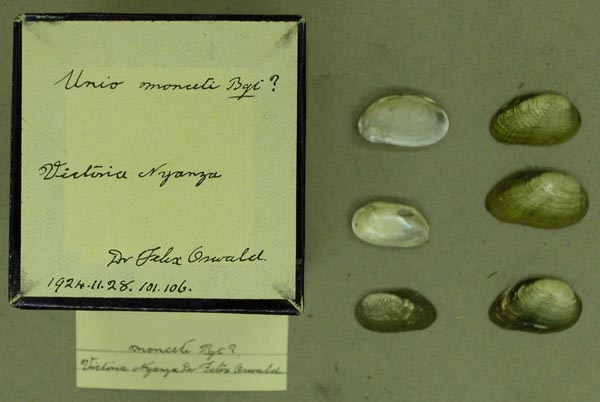 Unio monceti Bgt ?
Victoria Nyanza
Dr Felix Oswald.
1924.11.28. 101.106.
monceti Bgt ?
Victoria Nyanza Dr Felix Oswald